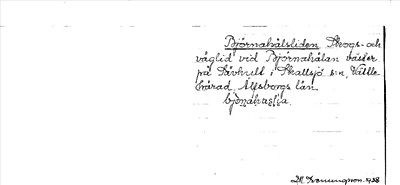 Björnahålsliden Skogs- och
väglid vid Björnahålan väster
på Sävhult i Skallsjö sn, Vättle
härad, Älfsborgs län.
bjönahuslia.
1938